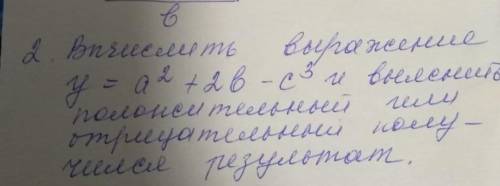 в
2. Вычислить выражение
y = a² + 2в - c³ и выяснить
положительный или
отрицательный полу-
чился результат.